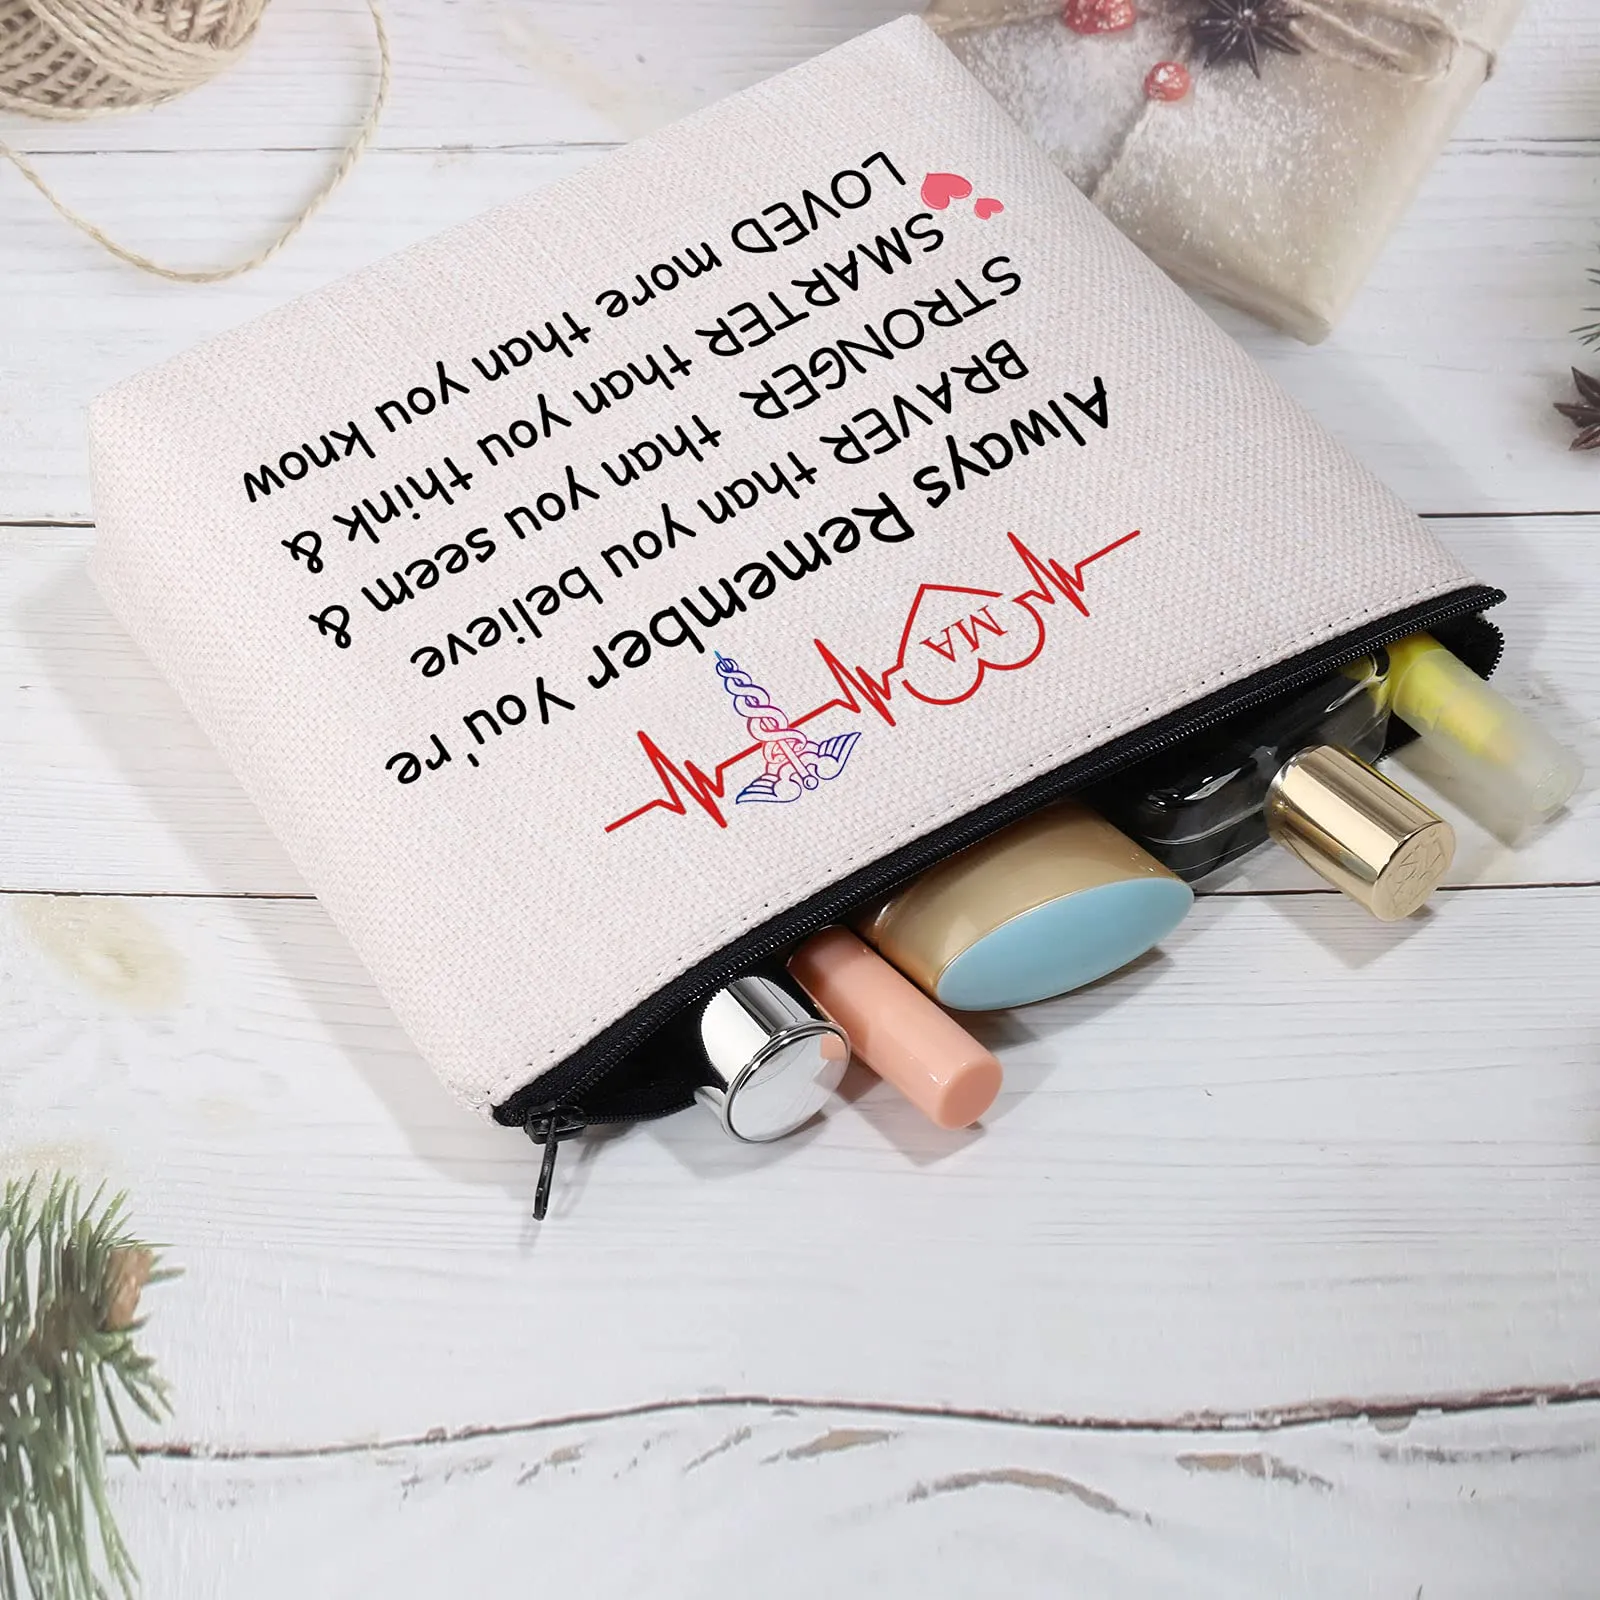 MA
Always Remember you're
BRAVER than you believe
STRONGER than you seem &
SMARTER than you think &
LOVED more than you know